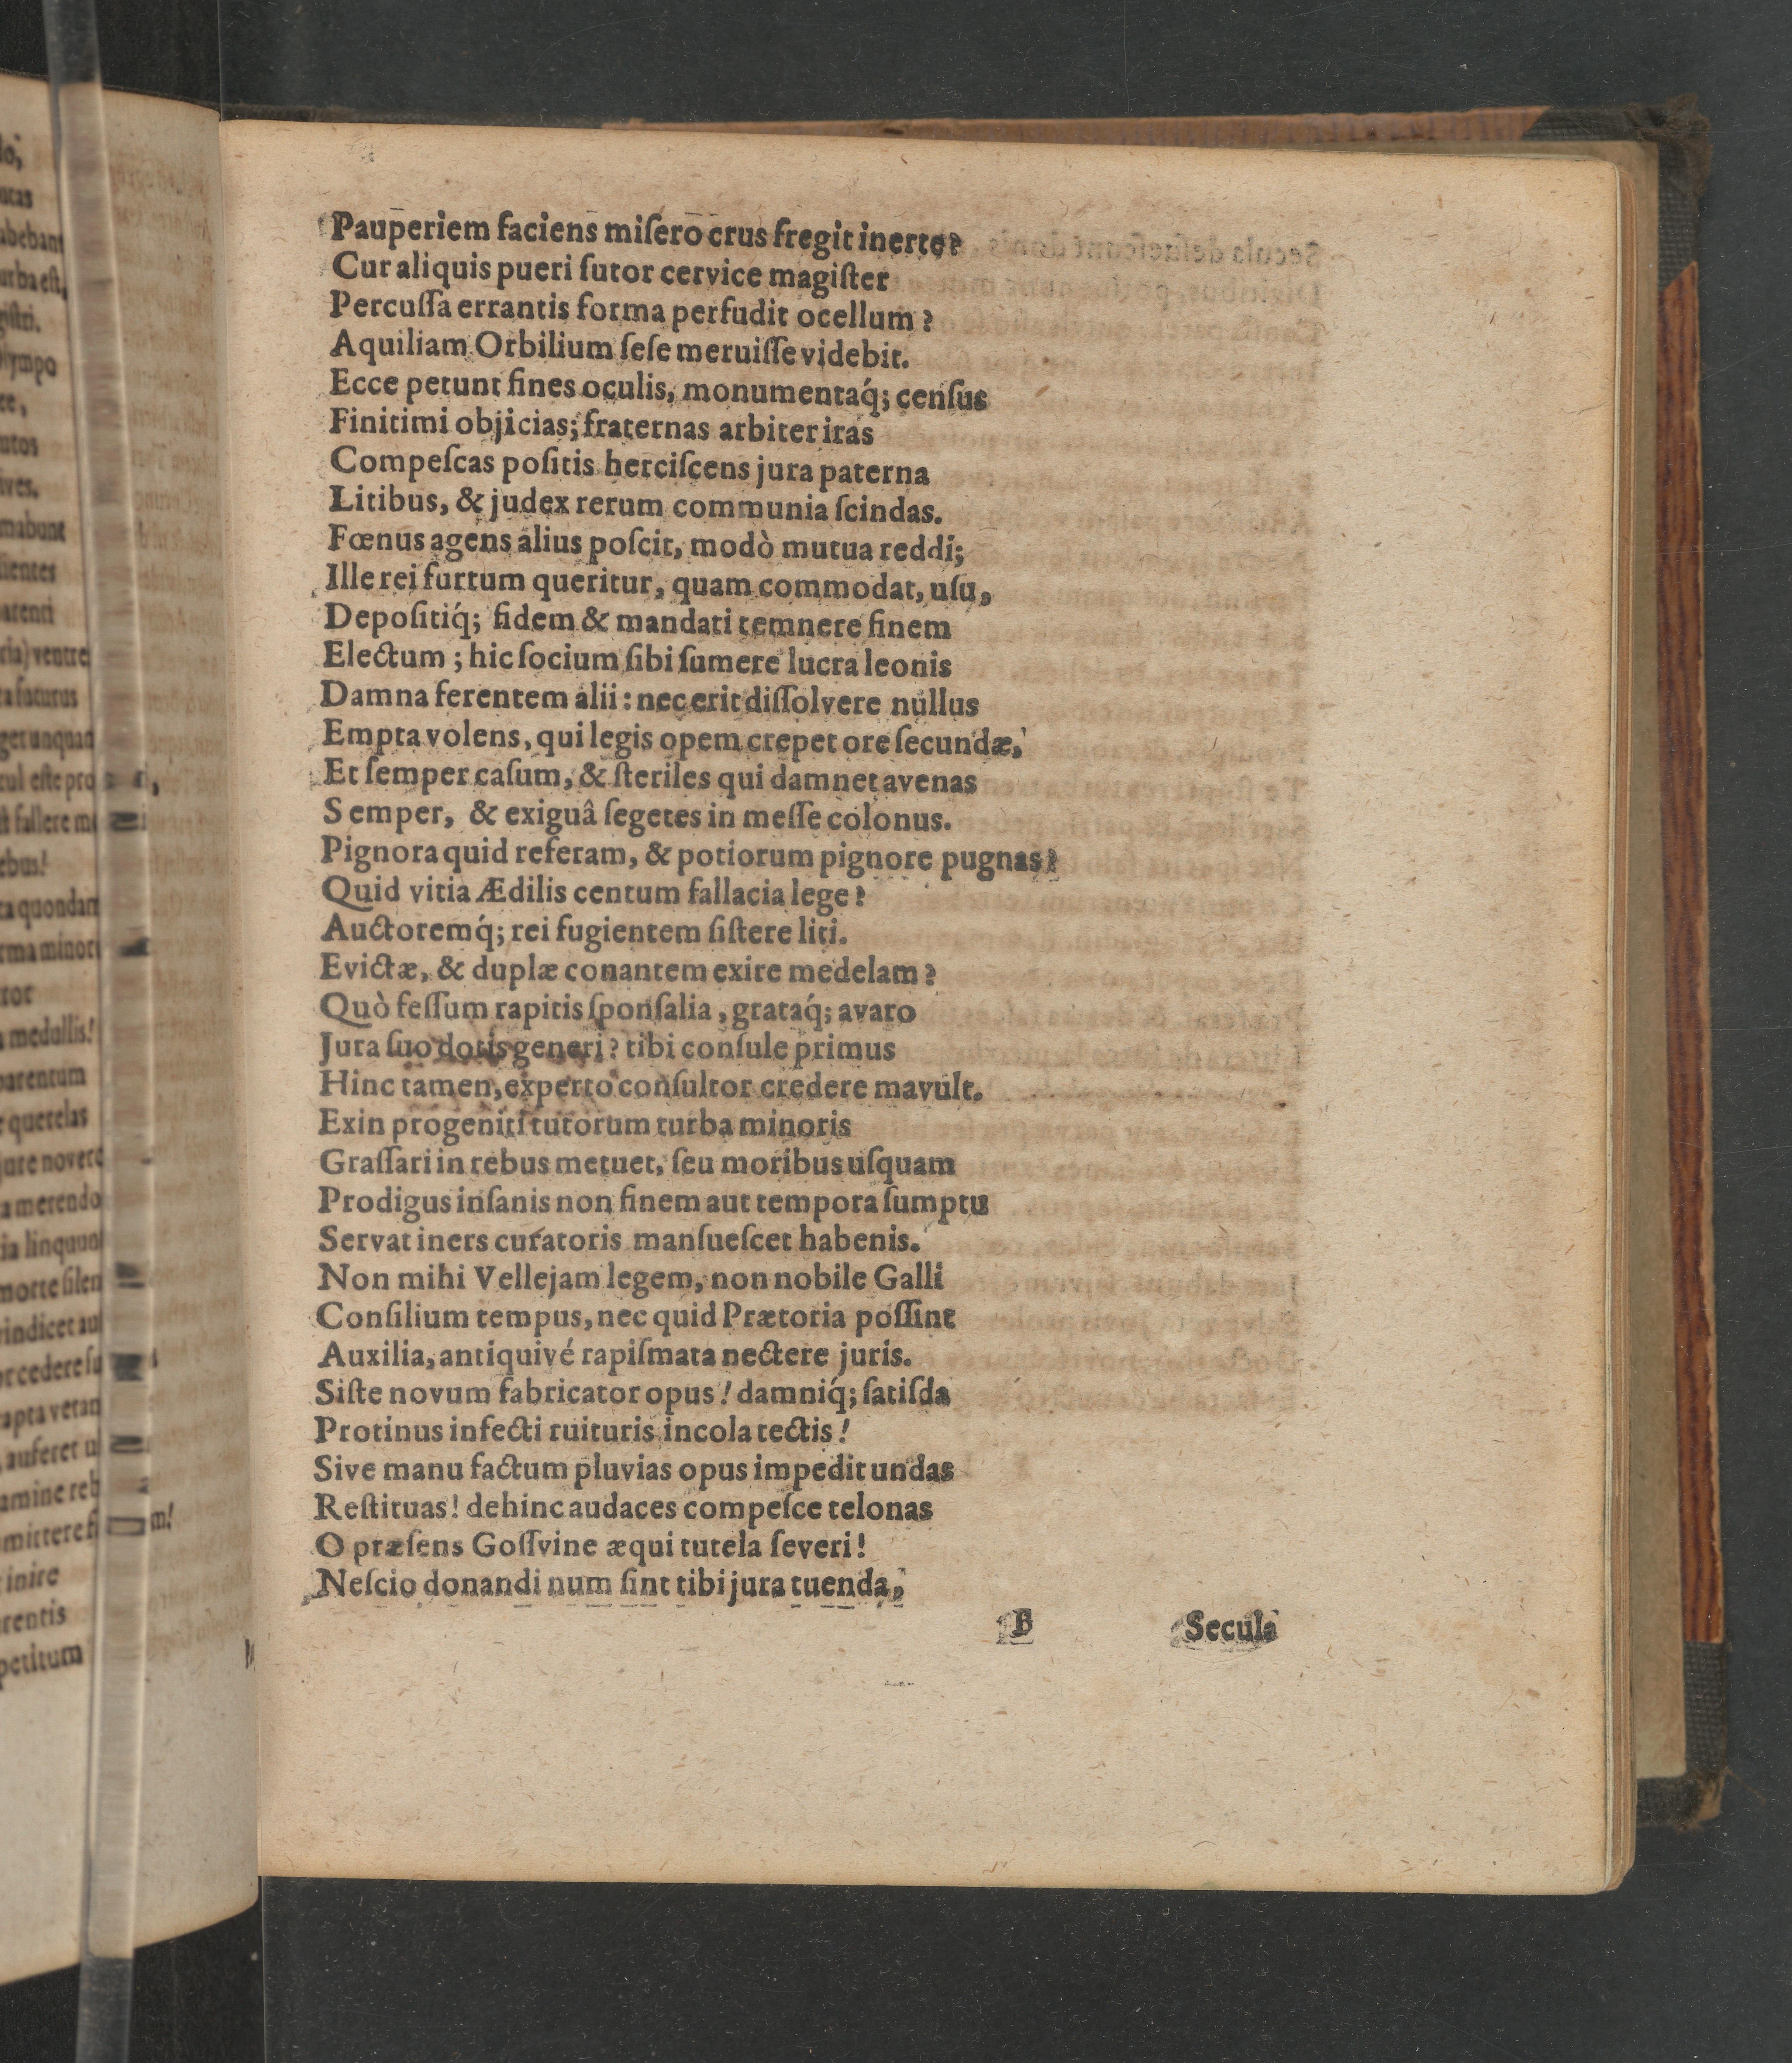 Pauperiem faciens miſero crus fregit inerte?
Cur aliquis pueri ſutor cervice magiſter
Percuſſa errantis forma perfudit ocellum?
Aquiliam Orbilium ſeſe meruiſſe videbit.
Ecce petunt fines oculis, monumentaq́; cenſus
Finitimi objicias; fraternas arbiter iras
Compeſcas poſitis herciſcens jura paterna
Litibus, & judex rerum communia ſcindas.
Fœnus agens alius poſcit, modò mutua reddi;
Ille rei furtum queritur, quam commodat, uſu,
Depoſitiq́; fidem & mandati temnere finem
Electum; hic ſocium ſibi ſumere lucra leonis
Damna ferentem alii: nec erit diſſolvere nullus
Empta volens, qui legis opem crepet ore ſecundæ,
Et ſemper caſum, & ſteriles qui damnet avenas
Semper, & exiguâ ſegetes in meſſe colonus.
Pignora quid referam, & potiorum pignore pugnas?
Quid vitia Ædilis centum fallacia lege?
Auctoremq́; rei fugientem ſiſtere liti.
Evictæ, & duplæ conantem exire medelam?
Quò feſſum rapitis ſponſalia, grataq́; avaro
Jura ſuo dotis generi? tibi conſule primus
Hinc tamen, experto conſultor credere mavult.
Exin progeniti tutorum turba minoris
Graſſari in rebus metuet, ſeu moribus uſquam
Prodigus inſanis non finem aut tempora ſumptu
Servat iners curatoris manſueſcet habenis.
Non mihi Vellejam legem, non nobile Galli
Conſilium tempus, nec quid Prætoria poſſint
Auxilia, antiquivé rapiſmata nectere juris.
Siſte novum fabricator opus! damniq́; ſatiſda
Protinus infecti ruituris incola tectis!
Sive manu factum pluvias opus impedit undas
Reſtituas! dehinc audaces compeſce telonas
O præſens Goſſvine æqui tutela ſeveri!
Neſcio donandi num ſint tibi jura tuenda,
B Secula